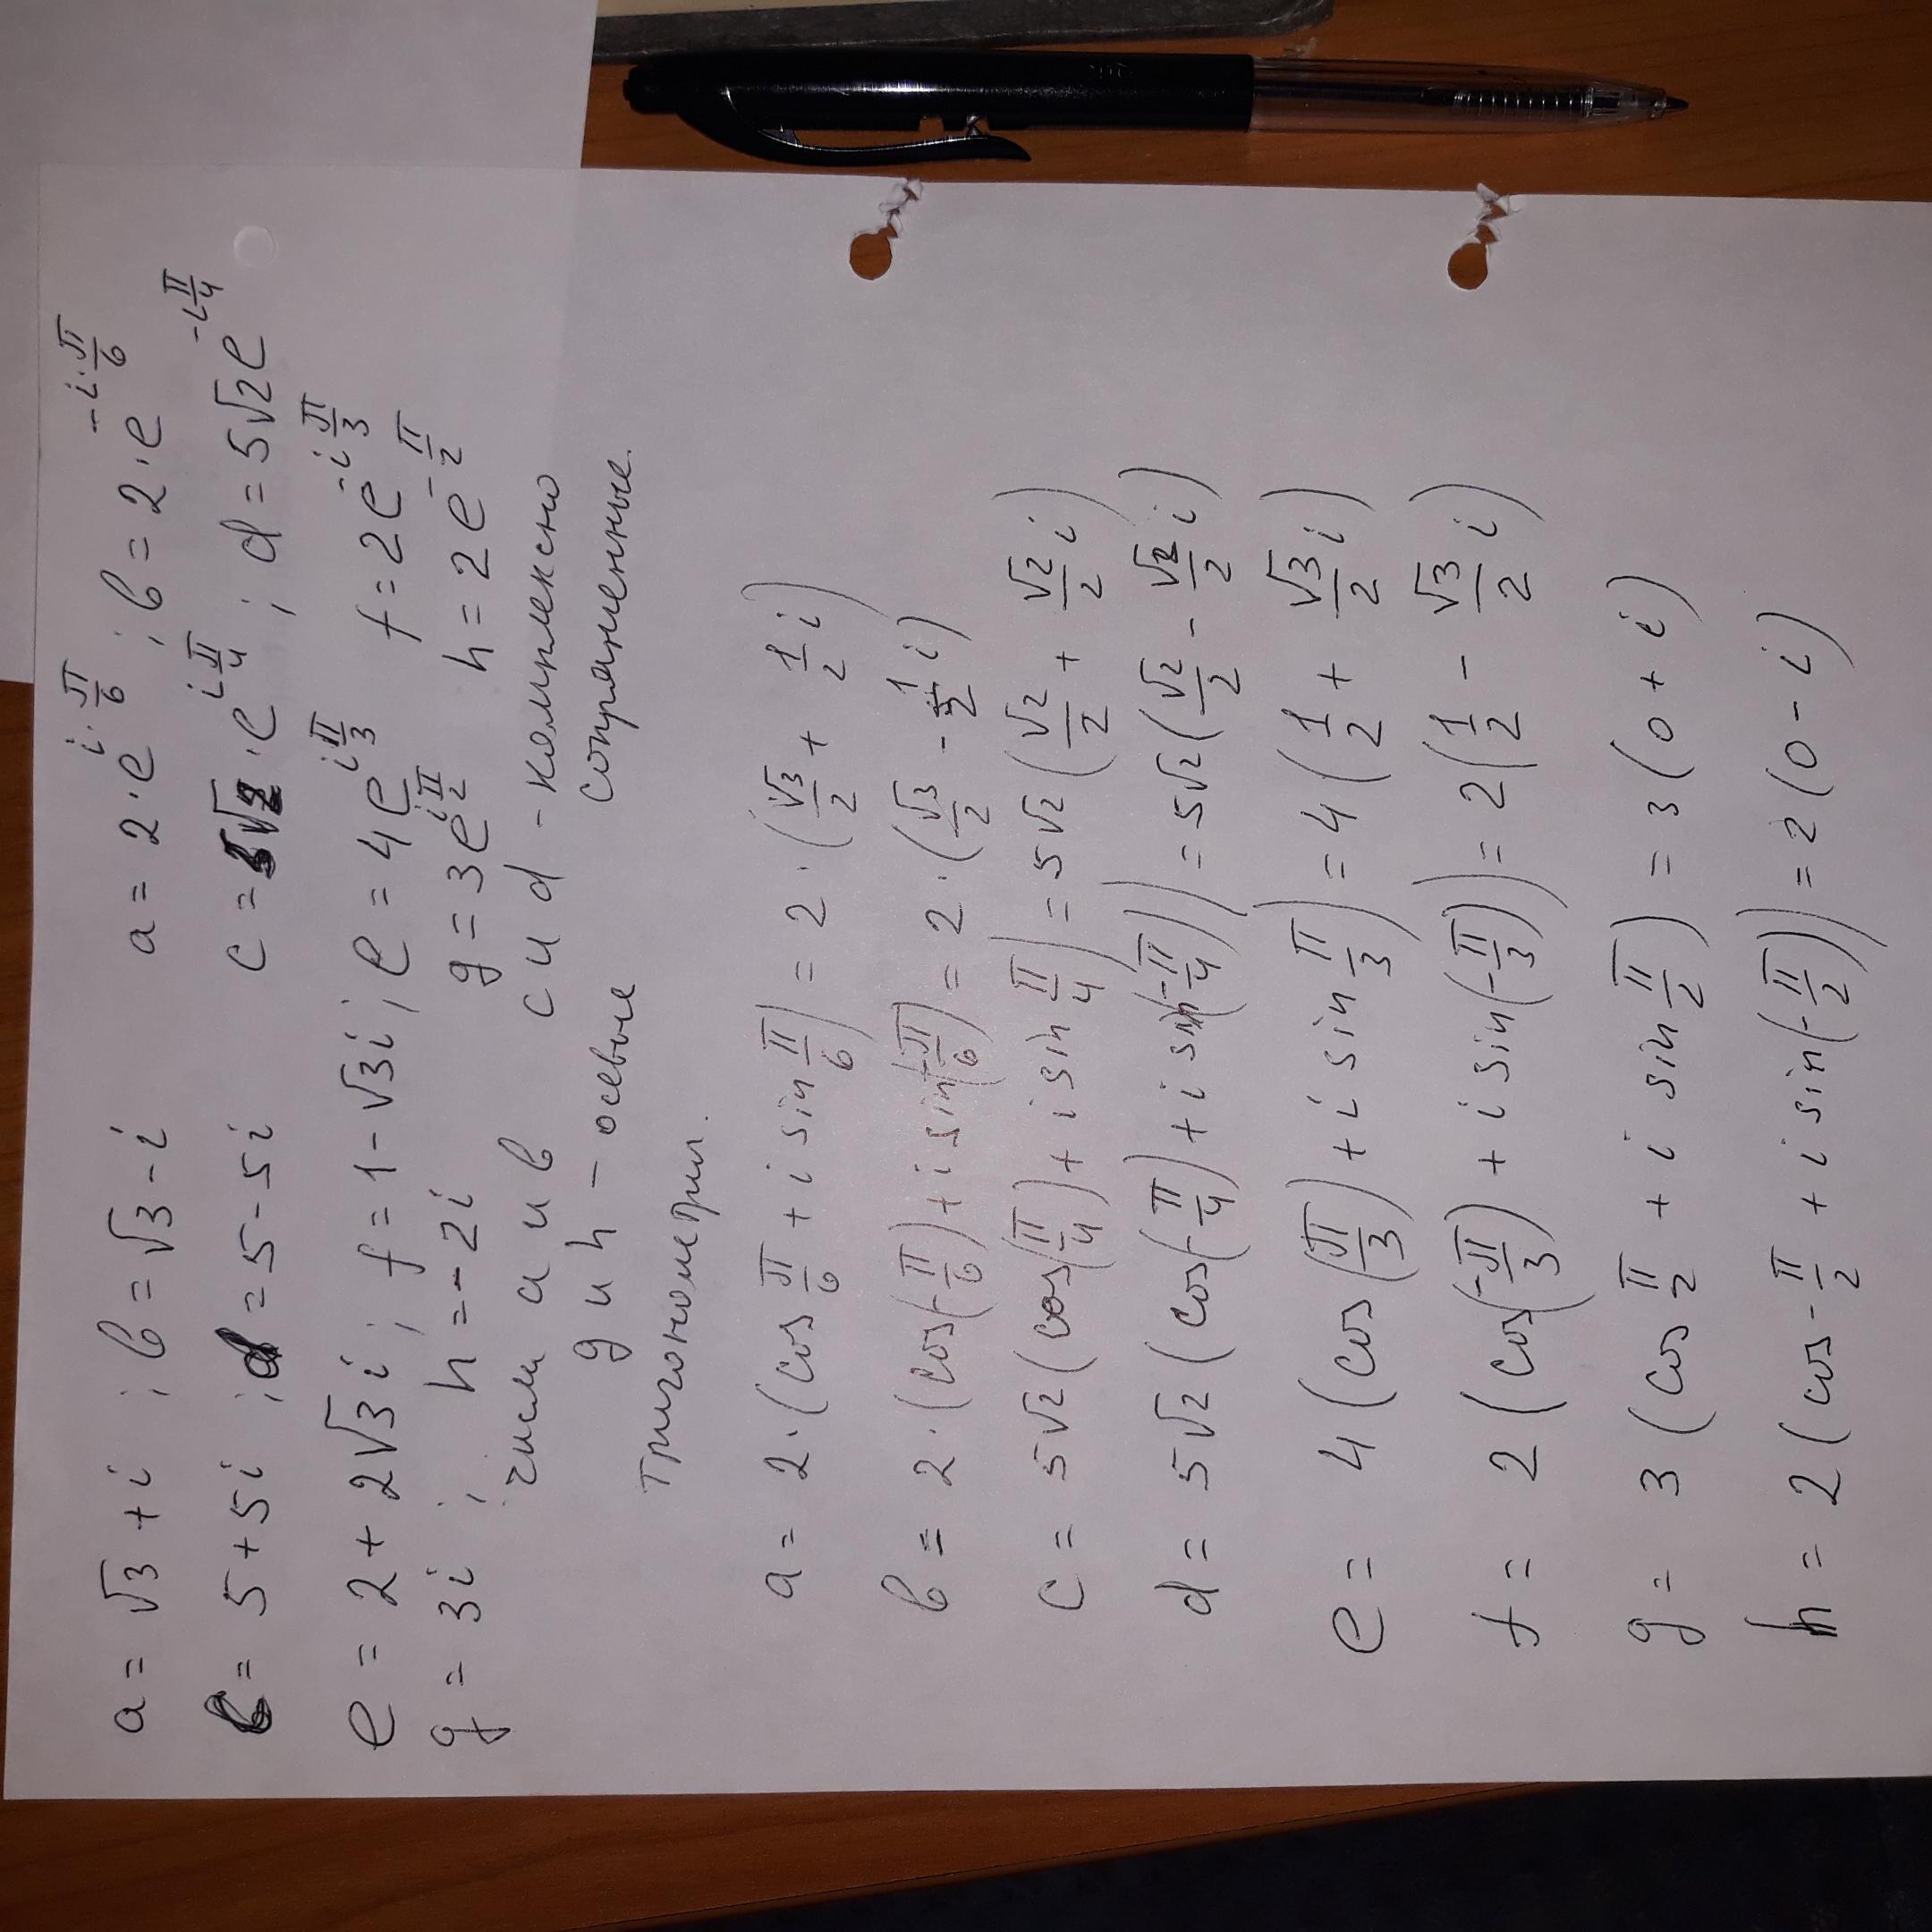 a = √3 + i ; b = √3 - i   a = 2·e^{i·π/6} ; b = 2·e^{-i·π/6}
c = 5 + 5i ; d = 5 - 5i   c = 5√2·e^{iπ/4} ; d = 5√2e^{-iπ/4}
e = 2 + 2√3i ; f = 1 - √3i ; e = 4e^{iπ/3}   f = 2e^{-iπ/3}
g = 3i ; h = -2i   g = 3e^{iπ/2}   h = 2e^{-π/2}
числа a и b   c и d - комплексно
g и h - осевые   сопряженные.
Тригонометрич.
a = 2·(cos π/6 + i sin π/6) = 2·(√3/2 + 1/2 i)
b = 2·(cos(-π/6) + i sin(-π/6) = 2·(√3/2 - 1/2 i)
c = 5√2 (cos(π/4) + i sin π/4) = 5√2 (√2/2 + √2/2 i)
d = 5√2 (cos(-π/4) + i sin(-π/4))) = 5√2 (√2/2 - √2/2 i)
e = 4 (cos(π/3) + i sin π/3) = 4 (1/2 + √3/2 i)
f = 2 (cos(-π/3) + i sin(-π/3)) = 2(1/2 - √3/2 i)
g = 3 (cos π/2 + i sin π/2) = 3 (0 + i)
h = 2 (cos -π/2 + i sin(-π/2)) = 2 (0 - i)